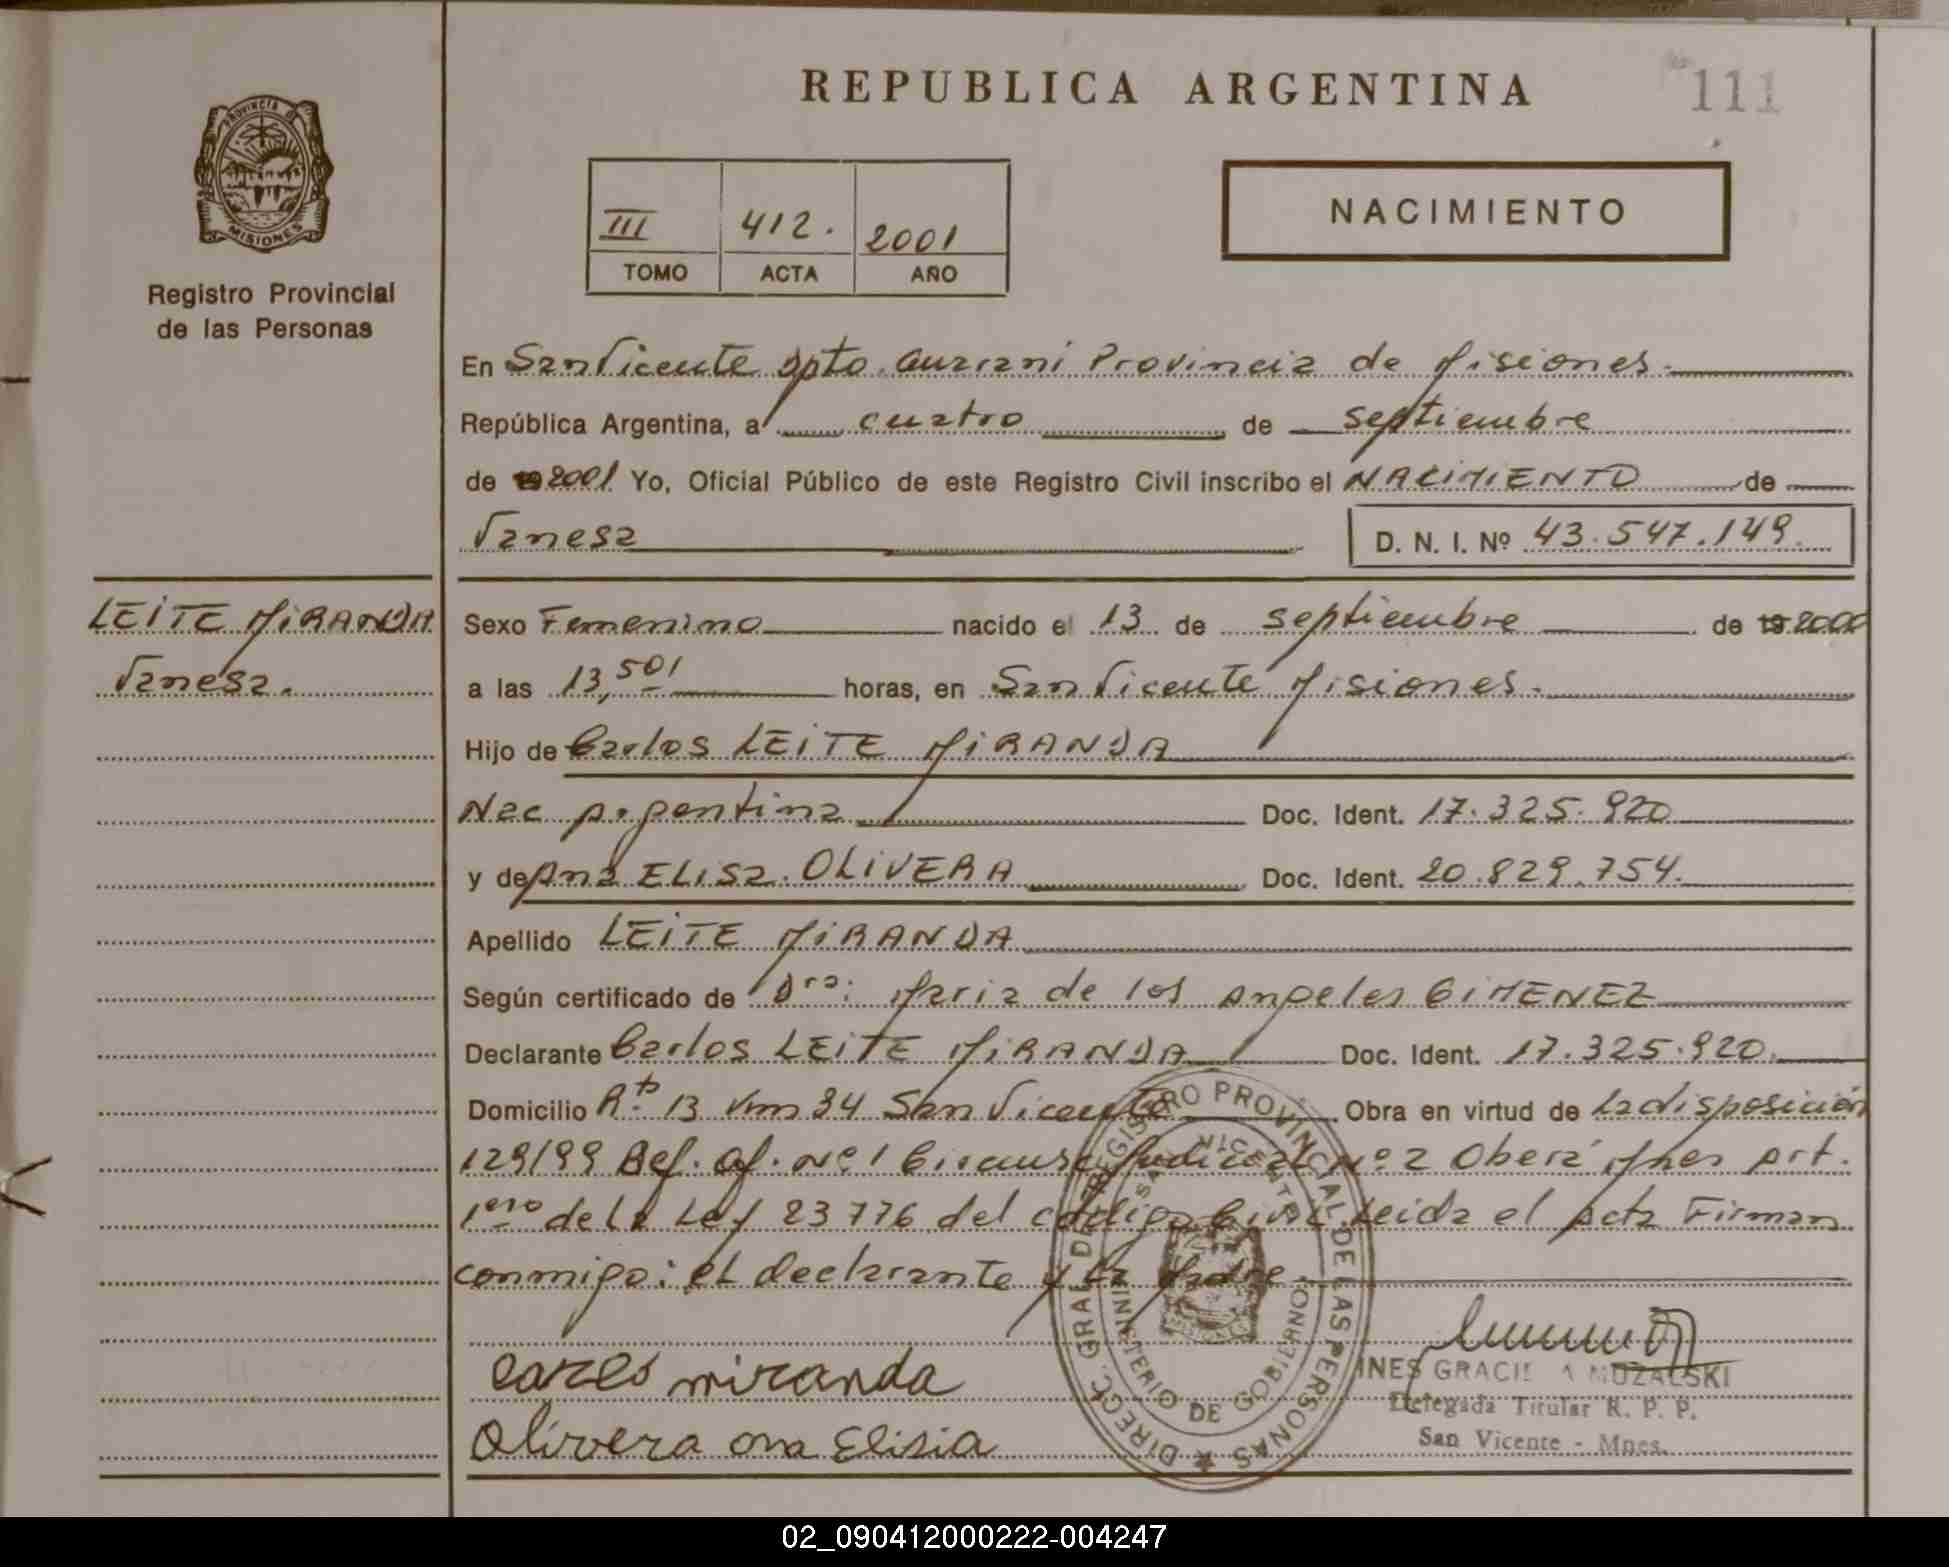 REPUBLICA ARGENTINA
111
PROVINCIA DE
MISIONES
Registro Provincial
de las Personas
III 412. 2001
TOMO ACTA AÑO
NACIMIENTO
En San Vicente Dpto. Guarani Provincia de Misiones.
República Argentina, a cuatro de septiembre
de 19 2001 Yo, Oficial Público de este Registro Civil inscribo el NACIMIENTO de
Vanesa D. N. I. Nº 43.547.149.
LEITE MIRANDA
Vanesa.
Sexo Femenino nacido el 13 de septiembre de 19 2000
a las 13,50' horas, en San Vicente Misiones.
Hijo de Carlos LEITE MIRANDA
Nac Argentina Doc. Ident. 17.325.920
y de Ana ELisa. OLIVERA Doc. Ident. 20.829.754.
Apellido LEITE MIRANDA
Según certificado de Dra: Maria de los Angeles GIMENEZ
Declarante Carlos LEITE MIRANDA Doc. Ident. 17.325.920.
Domicilio Rta 13 Km 34 San Vicente Obra en virtud de La disposición
129/99 Def. Of. Nº 1 Circunsc Judicial Nº 2 Oberá Mnes Art.
1ero de la Ley 23776 del código Civil Leida el Acta Firman
conmigo: el declarante y la Madre.
carlos miranda
Olivera ana Elisia
DIRECC. GRAL. DE REGISTRO PROVINCIAL DE LAS PERSONAS
SAN VICENTE
MINISTERIO DE GOBIERNO
INES GRACIELA MUZALSKI
Delegada Titular R. P. P.
San Vicente - Mnes.
02_090412000222-004247